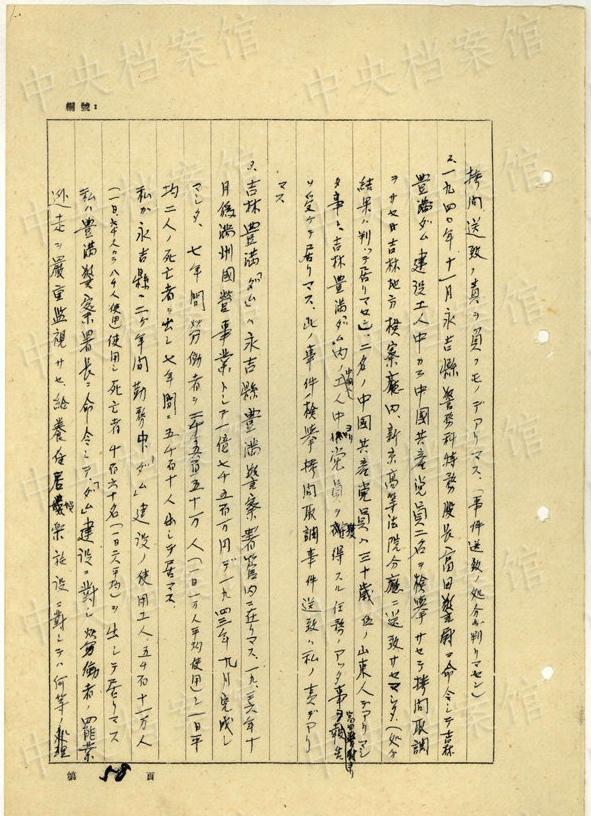 編號:
拷問送致ノ責ヲ負フモノデアリマス、(事件送致ノ処分ハ判リマセン)
2、一九四〇年、十一月永吉縣警務科特務股長富田警尉ニ命令シテ吉林
豊満ダム建設工人中カラ中國共産党員二名ヲ検挙サセテ拷問取調
ヲナサセ吉林地方検察廳内、新京高等法院分廳ニ送致サセマシタ、(処分
結果ハ判ッテ居リマセン)二名ノ中國共産党員ハ三十歳位ノ山東人デアリマシ
タ事、吉林豊満ダム内ノ工人中ヨリ党員ヲ獲得スル任務ノアッタ事ヲ報告
富田警尉ヨリ
ヲ受ケテ居リマス、此ノ事件ノ検挙拷問取調事件送致ハ私ノ責デアリ
マス
3、吉林豊満「ダム」ハ永吉縣豊満警察署管内ニ在リマス、一九三六年十
月後満州國営事業トシテ一億七千五百万円デ一九四三年九月完成シ
マシタ、七年間労働者ヲ二千五百五十一万人(一日一万人平均使用)シ一日平
均二人ノ死亡者ヲ出シ七年間ニ五千百十人出シテ居マス
私ガ永吉縣ニ二ケ年間勤務中、「ダム」建設ノ使用工人五千百十一万人
使用シ死亡者千百六十名(一日二人平均)ヲ出シテ居リマス
私ハ豊満警察署長ニ命令シテ、「ダム」建設ニ對シ労働者ノ罷業
逃走ヲ嚴重監視サセ給養住居娯楽施設ニ對シテハ何等ノ
第 58 頁
中央档案馆